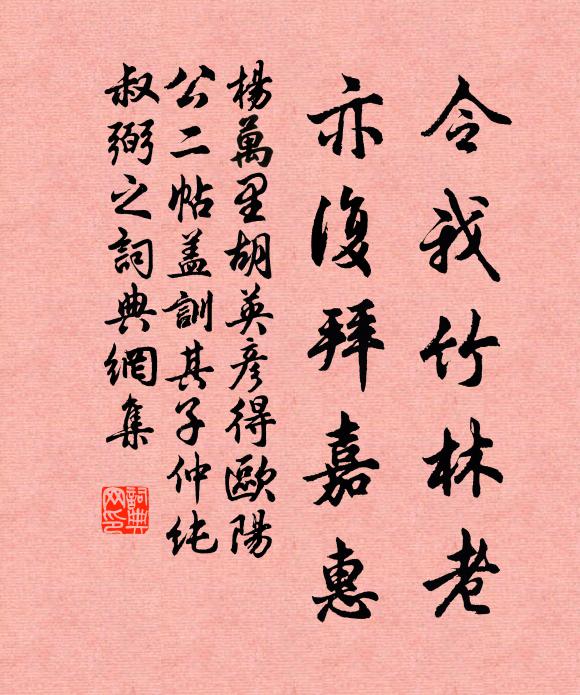 令我竹林老
亦復拜嘉惠
楊萬里胡英彦得歐陽
公二帖蓋訓其子仲純
叔弼之詞典網集
詞典網印